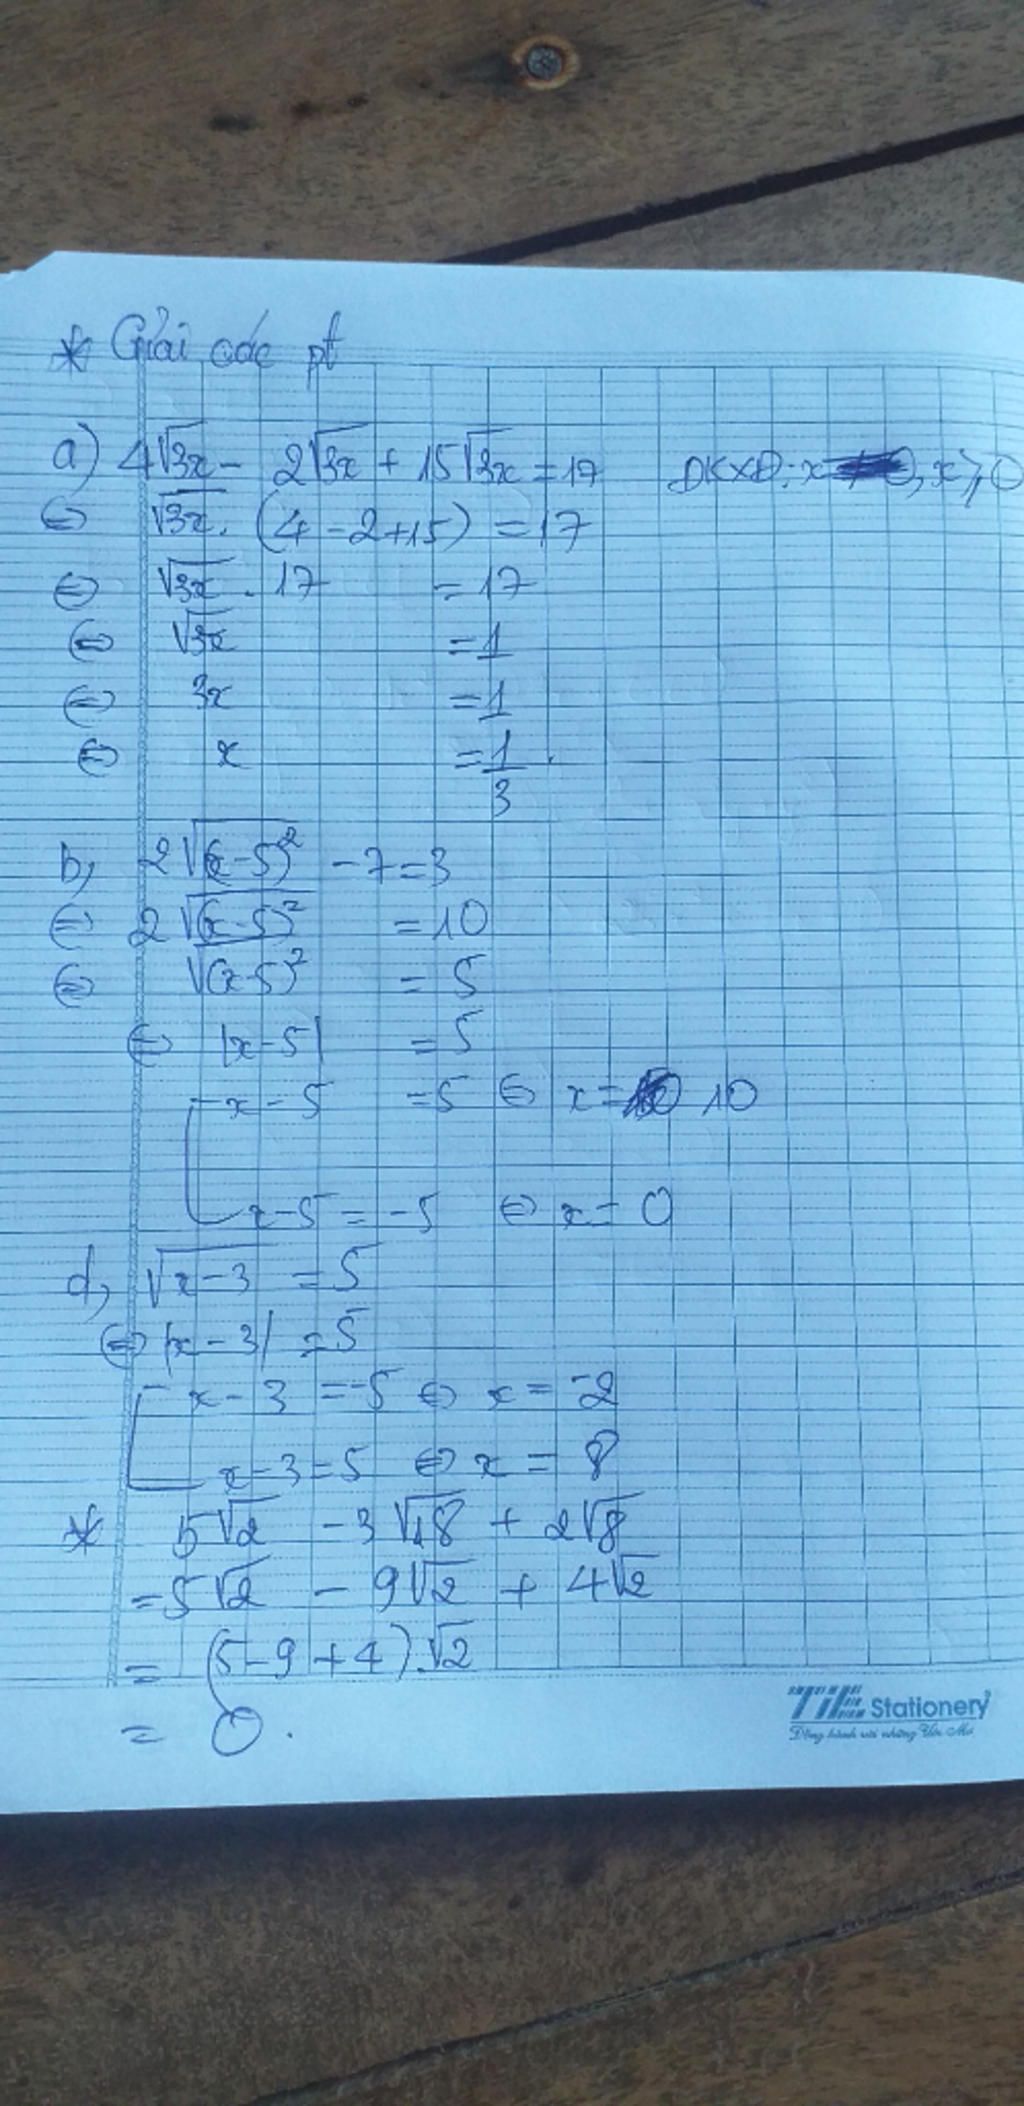 * Giải các pt
a) 4√3x - 2√3x + 15√3x = 17 ĐKXĐ: x , x ⩾ 0
⇔ √3x . (4 - 2 + 15) = 17
⇔ √3x . 17 = 17
⇔ √3x = 1
⇔ 3x = 1
⇔ x = 1/3 .
b, 2√(x-5)² - 7 = 3
⇔ 2√(x-5)² = 10
⇔ √(x-5)² = 5
⇔ |x-5| = 5
x - 5 = 5 ⇔ x = 10
x - 5 = -5 ⇔ x = 0
d, √x-3 = 5
⇔ |x-3| = 5
x - 3 = -5 ⇔ x = -2
x - 3 = 5 ⇔ x = 8
* 5√2 - 3√18 + 2√8
= 5√2 - 9√2 + 4√2
= (5 - 9 + 4).√2
= 0.
TiE Stationery